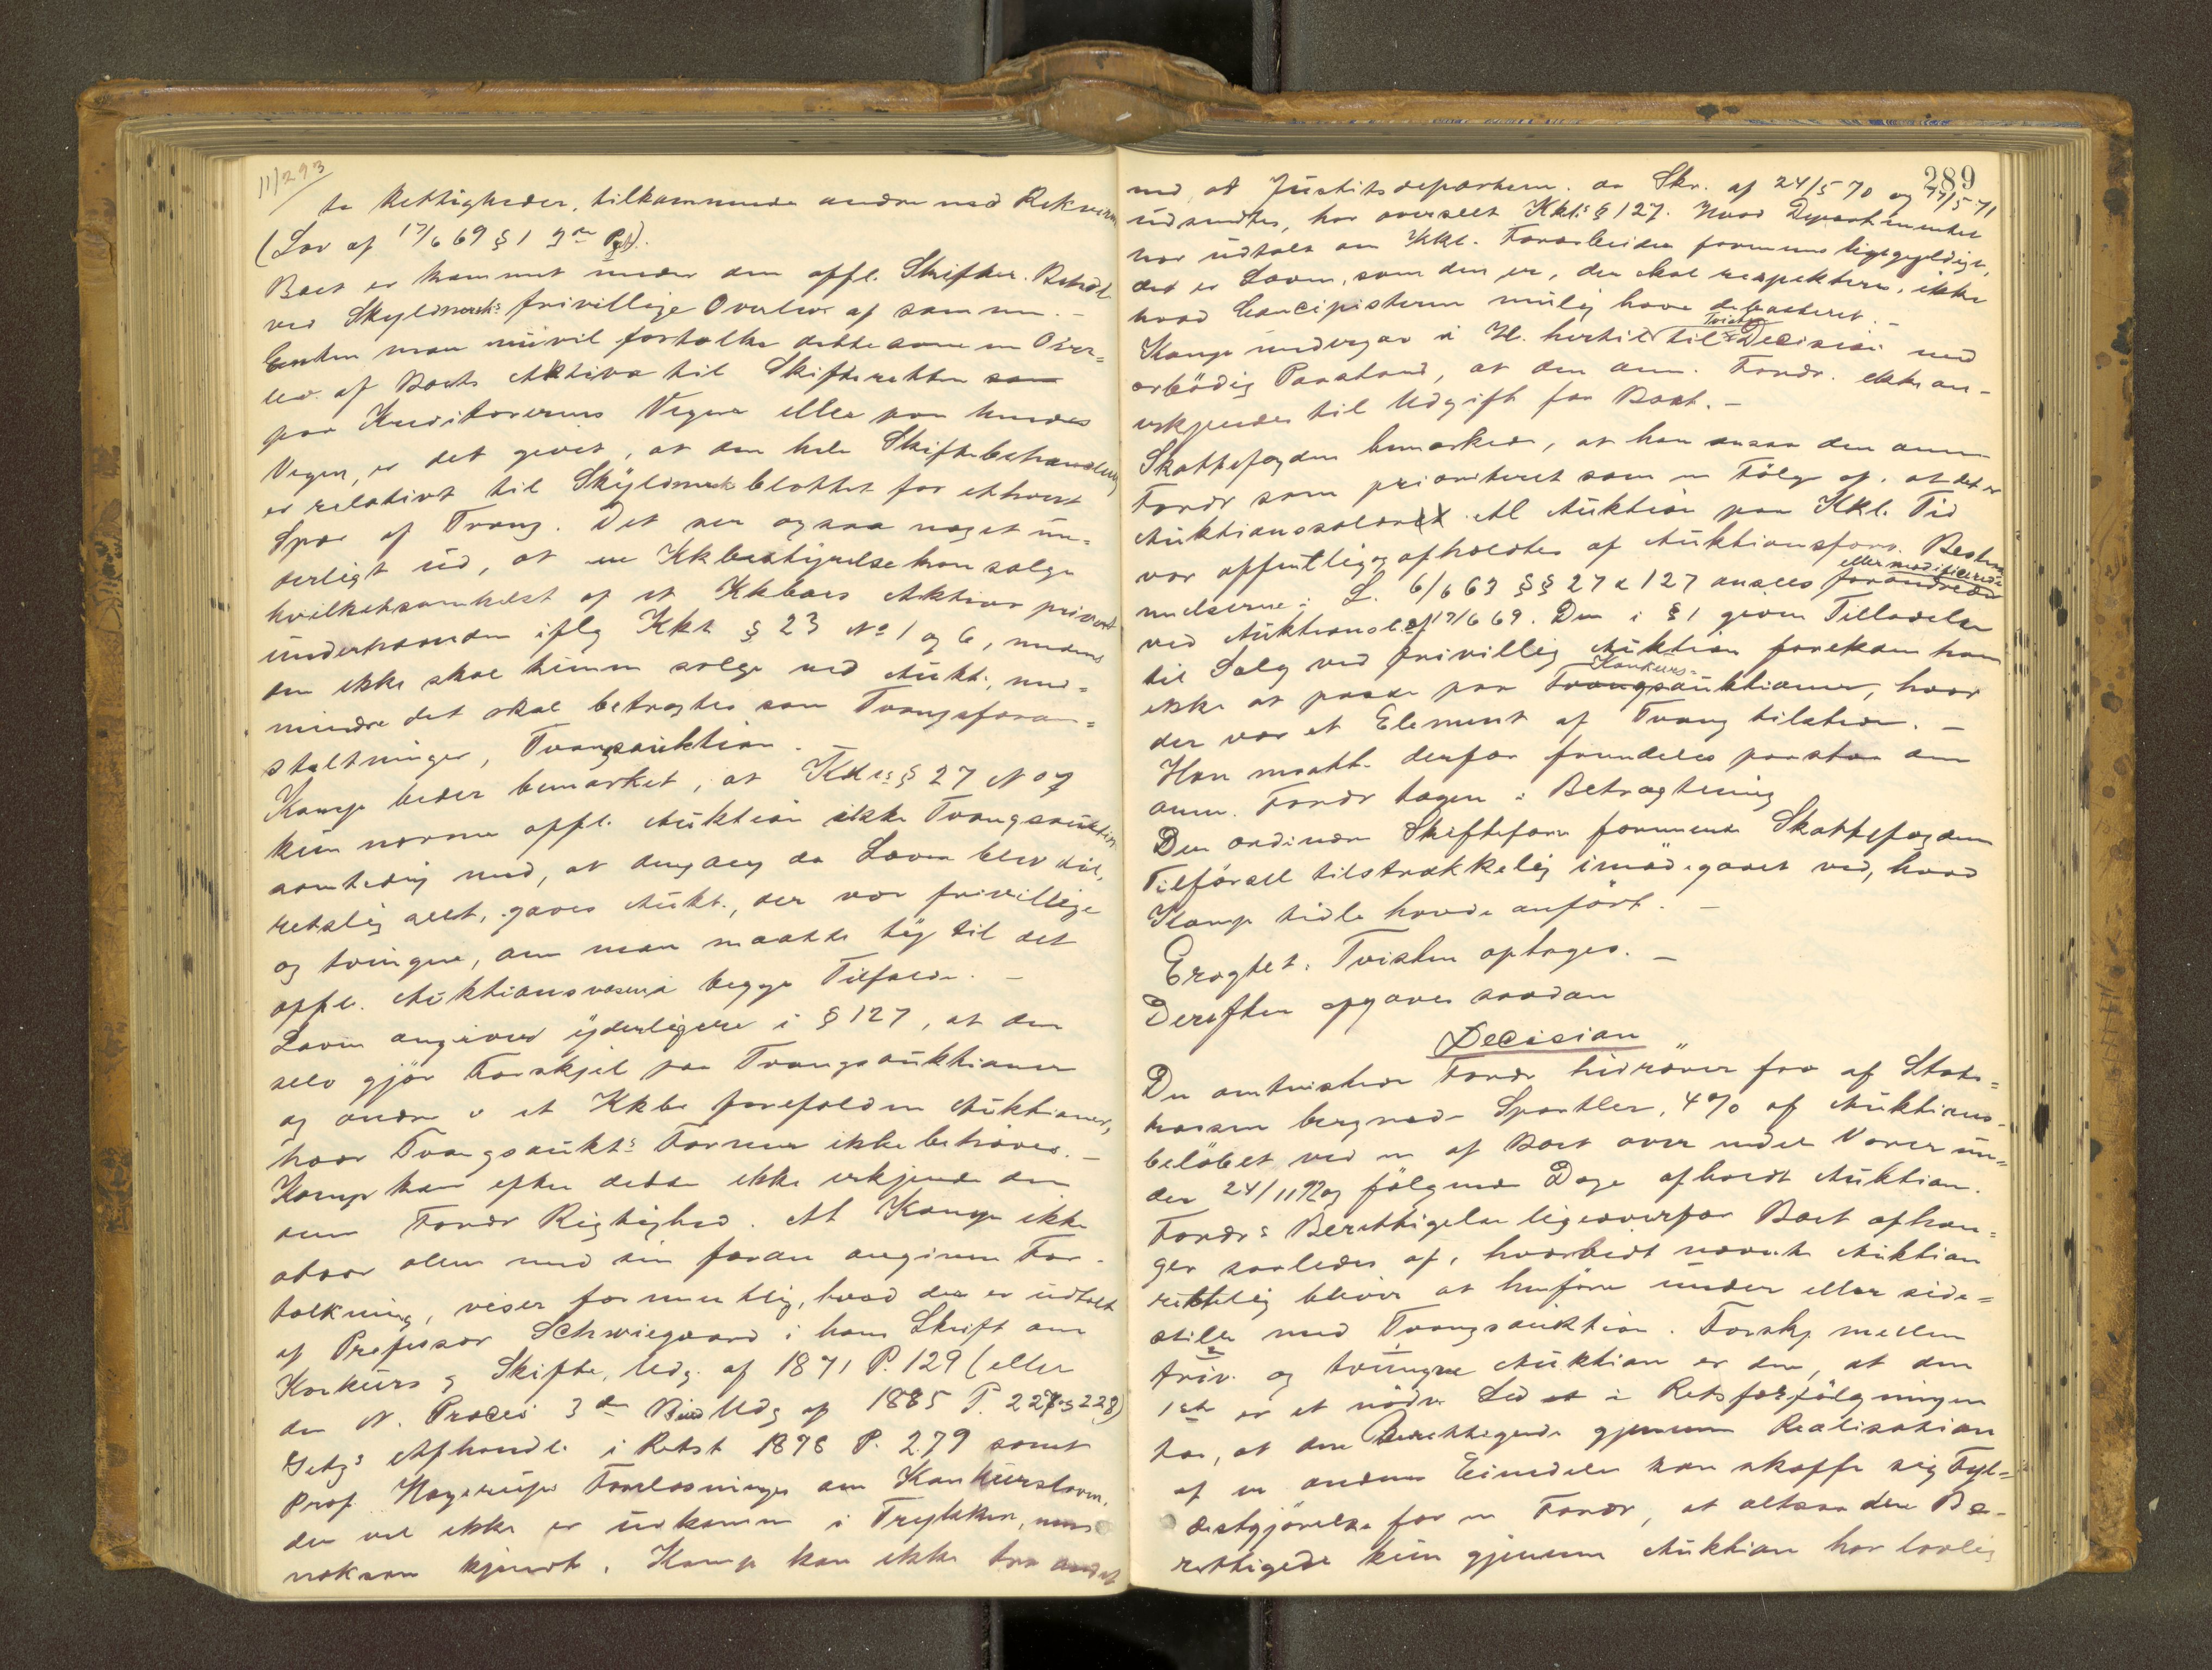 11/293
te Rettigheder, tilkommende andre end Rekvirenten
(Lov af 17/6 69 § 1 3die Pkt).
Boet er kommet under den offl. Skifter. Behdl
ved Skyldnerens frivillige Overlev af samme. –
Enten man nu vil fortolke dette som en Over=
lev. af Boets Aktiva til Skifteretten som
paa Kreditorernes Vegne eller paa hendes
Vegne, er det givet, at den hele Skiftebehandling
er relativt til Skyldneren blottet for ethvert
Spor af Tvang. Det ser ogsaa noget un=
derligt ud, at en Kkbestyrelse kan sælge
hvilketsomhelst af et Kkboes Aktiver privat
underhaanden iflg Kkl § 23 No 1 og 6, medens
den ikke skal kunne sælge ved Aukt., med=
mindre det skal betragtes som Tvangsforan=
staltninger, Tvangsauktion.
Kamp beder bemærket, at Kkls § 27 No 7
kun nævner offl. Auktion ikke Tvangsauktion
samtidig med, at dengang da Loven blev til,
retslig seet, gaves Aukt., der var frivillige
og tvungne, om man maatte ty til det
offl. Auktionsvæsen i begge Tilfælde. –
Loven angiver yderligere i § 127, at den
selv gjør Forskjel paa Tvangsauktioner
og andre i et Kkbo forefaldne Auktioner,
hvor Tvangsaukts Former ikke behøves. –
Kamp kan efter dette ikke erkjende den
anm Fordr Rigtighed. At Kamp ikke
staar alene med sin foran angivne For-
tolkning, viser formentlig, hvad der er udtalt
af Professor Schweigaard i hans Skrift om
Konkurs og Skifte, Udg. af 1871 P. 129 (eller
den N. Proces 3die Bind Udg af 1885 P. 227 og 228)
Getz's Afhandl. i Retst 1878 P. 279 samt
Prof Hagerups Forelæsninger om Konkursloven,
der vel ikke er udkommen i Trykken, men
noksom kjendt. Kamp kan ikke tro andet
289
end at Justitsdepartem. da Skr. af 24/5 70 og 27/5 71
udsendtes, har overseet Kkls § 127. Hvad Departementet
har udtalt om Kkl. Forarbeider formenes ligegyldigt,
det er Loven, som den er, der skal respekteres, ikke
hvad Concipisterne mulig have debatteret. –
Kamp undergav i H. hertil Tvisten til Decision med
ærbødig Paastand, at den anm. Fordr. ikke an-
erkjendes til Udgift for Boet. –
Skattefogden bemærkede, at han ansaa den anm
Fordr som prioriteret som en Følge af, at det er
Auktionssalær. Al Auktion paa Kkl. Tid
var offentlig og afholdtes af Auktionsforv. Bestem
melserne i L. 6/6 63 §§ 27 & 127 ansees forandrede eller modificerede
ved Auktionsl. af 17/6 69. Den i § 1 givne Tilladelse
til Salg ved frivillig Auktion forekom ham
ikke at passe paa Konkurs-auktioner, hvor
der var et Element af Tvang tilstede. –
Han maatte derfor fremdeles paastaa den
anm. Fordr tagen i Betragtning
Den ordinære Skifteforv formente Skattefogdens
Tilførsel tilstrækkelig imødegaaet ved, hvad
Kamp tidle havde anført. –
Eragtet: Tvisten optages. –
Derefter afgaves saadan
Decision
Den omtvistede Fordr hidrører fra af Stats=
kassen beregnede Sportler, 4% af Auktions-
beløbet ved en af Boet over endel Varer un=
der 24/11 92 og følgende Dage afholdt Auktion.
Fordrs Berettigelse ligeoverfor Boet afhæn=
ger saaledes af, hvorvidt nævnte Auktion
rettelig bliver at henføre under eller side=
stille med Tvangsauktion. Forskj mellem
friv. og tvungne Auktion er den, at den
1ste er et nødv Led i Retsforfølgningen
for, at den Berettigede gjennem Realisation
af en andens Eiendele kan skaffe sig Fyl=
destgjørelse for en Fordr, at altsaa den Be-
rettigede kun gjennem Auktion har lovlig